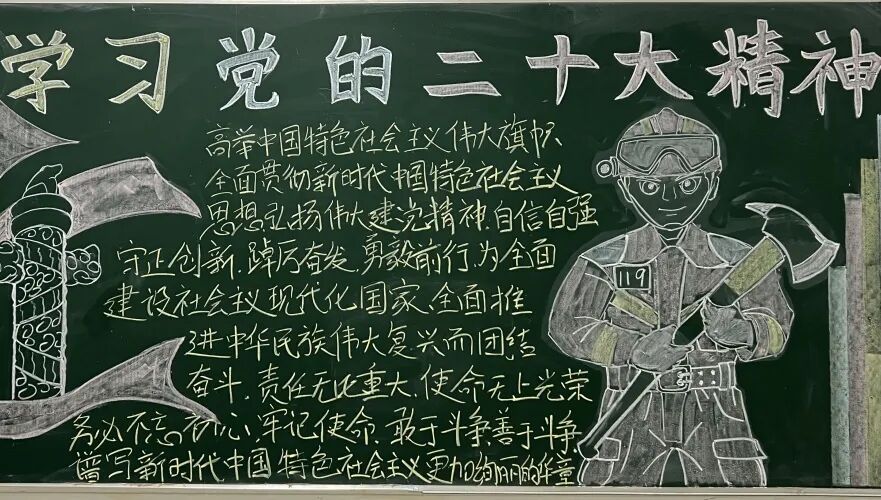 学习党的二十大精神
高举中国特色社会主义伟大旗帜
全面贯彻新时代中国特色社会主义
思想弘扬伟大建党精神,自信自强
守正创新,踔厉奋发,勇毅前行,为全面
建设社会主义现代化国家、全面推
进中华民族伟大复兴而团结
奋斗,责任无比重大,使命无上光荣
务必不忘初心,牢记使命,敢于斗争,善于斗争,
谱写新时代中国特色社会主义更加绚丽的华章
119